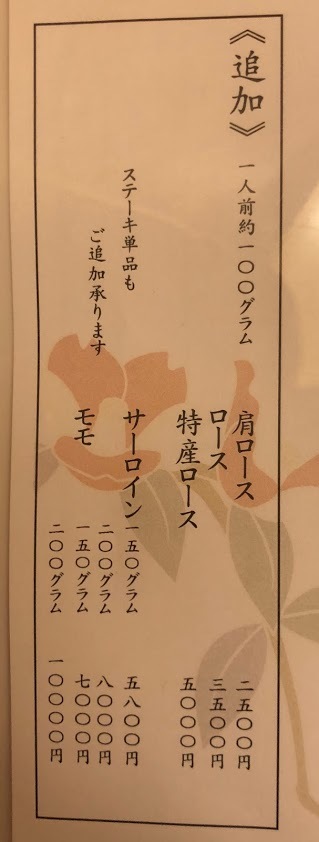 《追加》
一人前約一〇〇グラム
肩ロース 二五〇〇円
ロース 三五〇〇円
特産ロース 五〇〇〇円
ステーキ単品も
ご追加承ります
サーロイン 一五〇グラム 五八〇〇円
二〇〇グラム 八〇〇〇円
モモ 一五〇グラム 七〇〇〇円
二〇〇グラム 一〇〇〇〇円